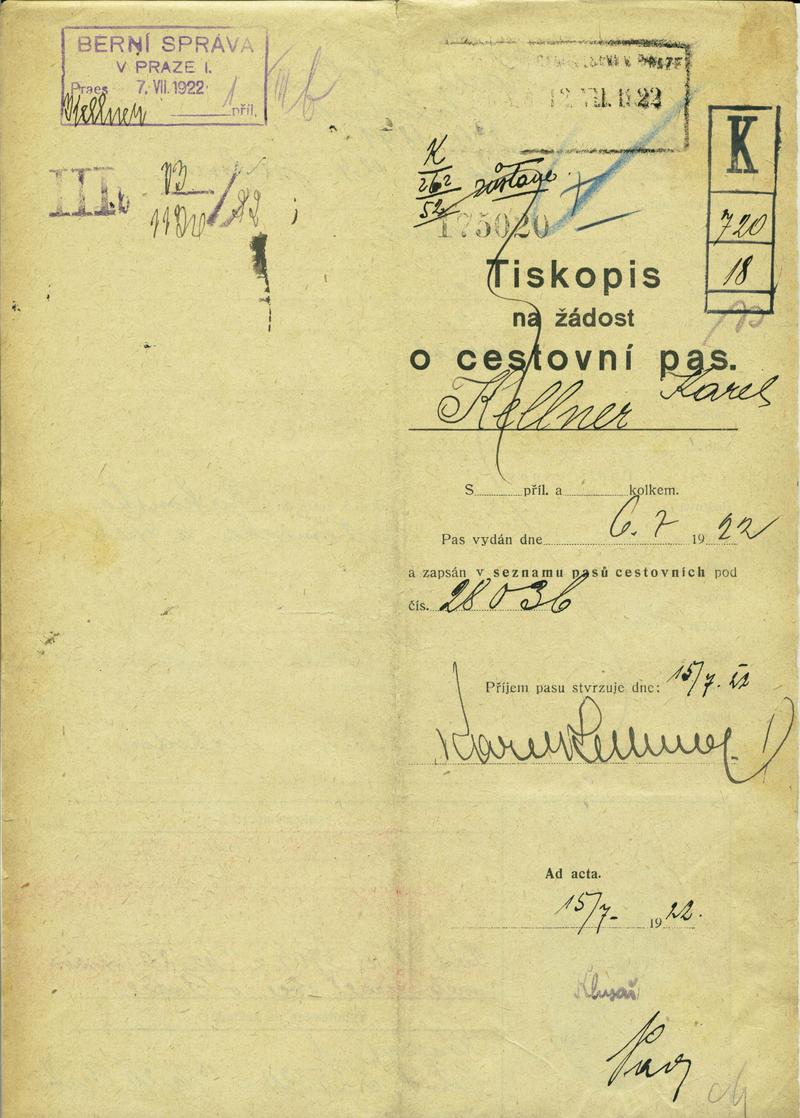 BERNÍ SPRÁVA
V PRAZE I.
Praes 7. VII. 1922
Kellner 1 příl.
12 VII. 1922
K
720
18
III b
K
262
52
zůstane
175020
Tiskopis
na žádost
o cestovní pas.
Kellner Karel
S........příl. a............kolkem.
Pas vydán dne 6. 7 1922
a zapsán v seznamu pasů cestovních pod
čís. 28036
Příjem pasu stvrzuje dne: 15/7. 22
Karel Kellner
Ad acta.
15/7- 1922.